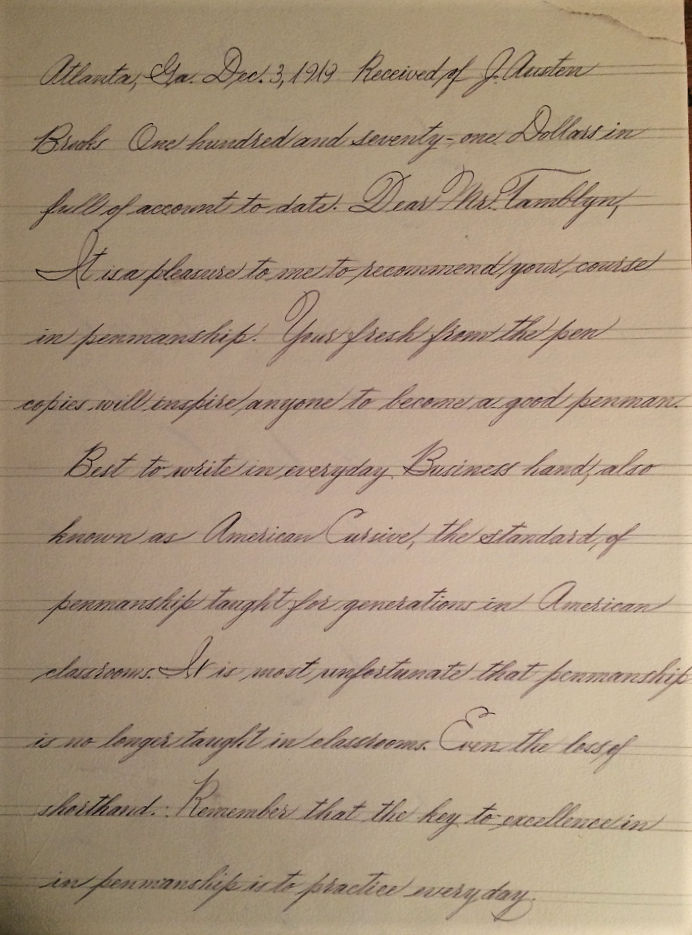 Atlanta, Ga. Dec. 3, 1919 Received of J. Austen
Brooks One hundred and seventy-one Dollars in
full of account to date. Dear Mr. Tamblyn,
It is a pleasure to me to recommend your course
in penmanship. Your fresh from the pen
copies will inspire anyone to become a good penman.
Best to write in everyday Business hand, also
known as American Cursive, the standard of
penmanship taught for generations in American
classrooms. It is most unfortunate that penmanship
is no longer taught in classrooms. Even the loss of
shorthand. Remember that the key to excellence in
in penmanship is to practice everyday.